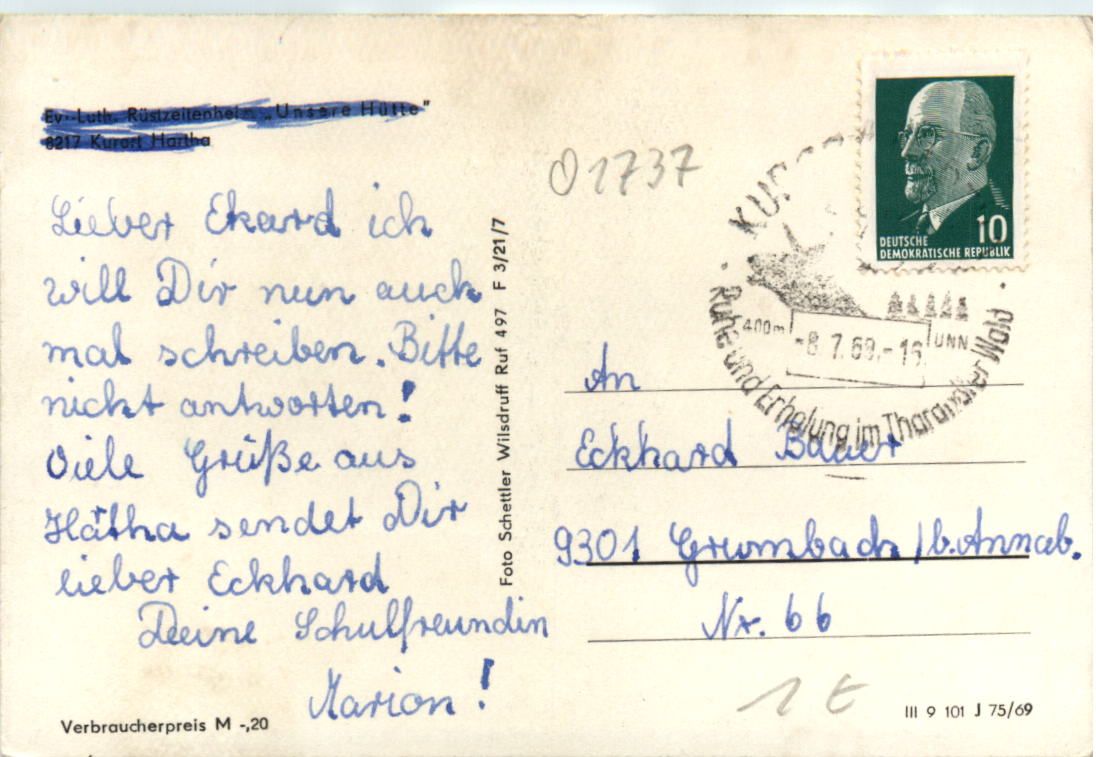 Ev.-Luth. Rüstzeitenheim „Unsere Hütte"
8217 Kurort Hartha
Lieber Ekard ich
will Dir nun auch
mal schreiben. Bitte
nicht antworten!
Viele Grüße aus
Hartha sendet Dir
lieber Eckhard
Deine Schulfreundin
Marion!
Verbraucherpreis M -,20
Foto Schettler Wilsdruff Ruf 497 F 3/21/7
01737
10
DEUTSCHE
DEMOKRATISCHE REPUBLIK
400m
-8.7.69.-16
ÜNN
Ruhe und Erholung im Tharandter Wald
An
Eckhard Bauer
9301 Grumbach / b. Annab.
Nr. 66
1 €
III 9 101 J 75/69